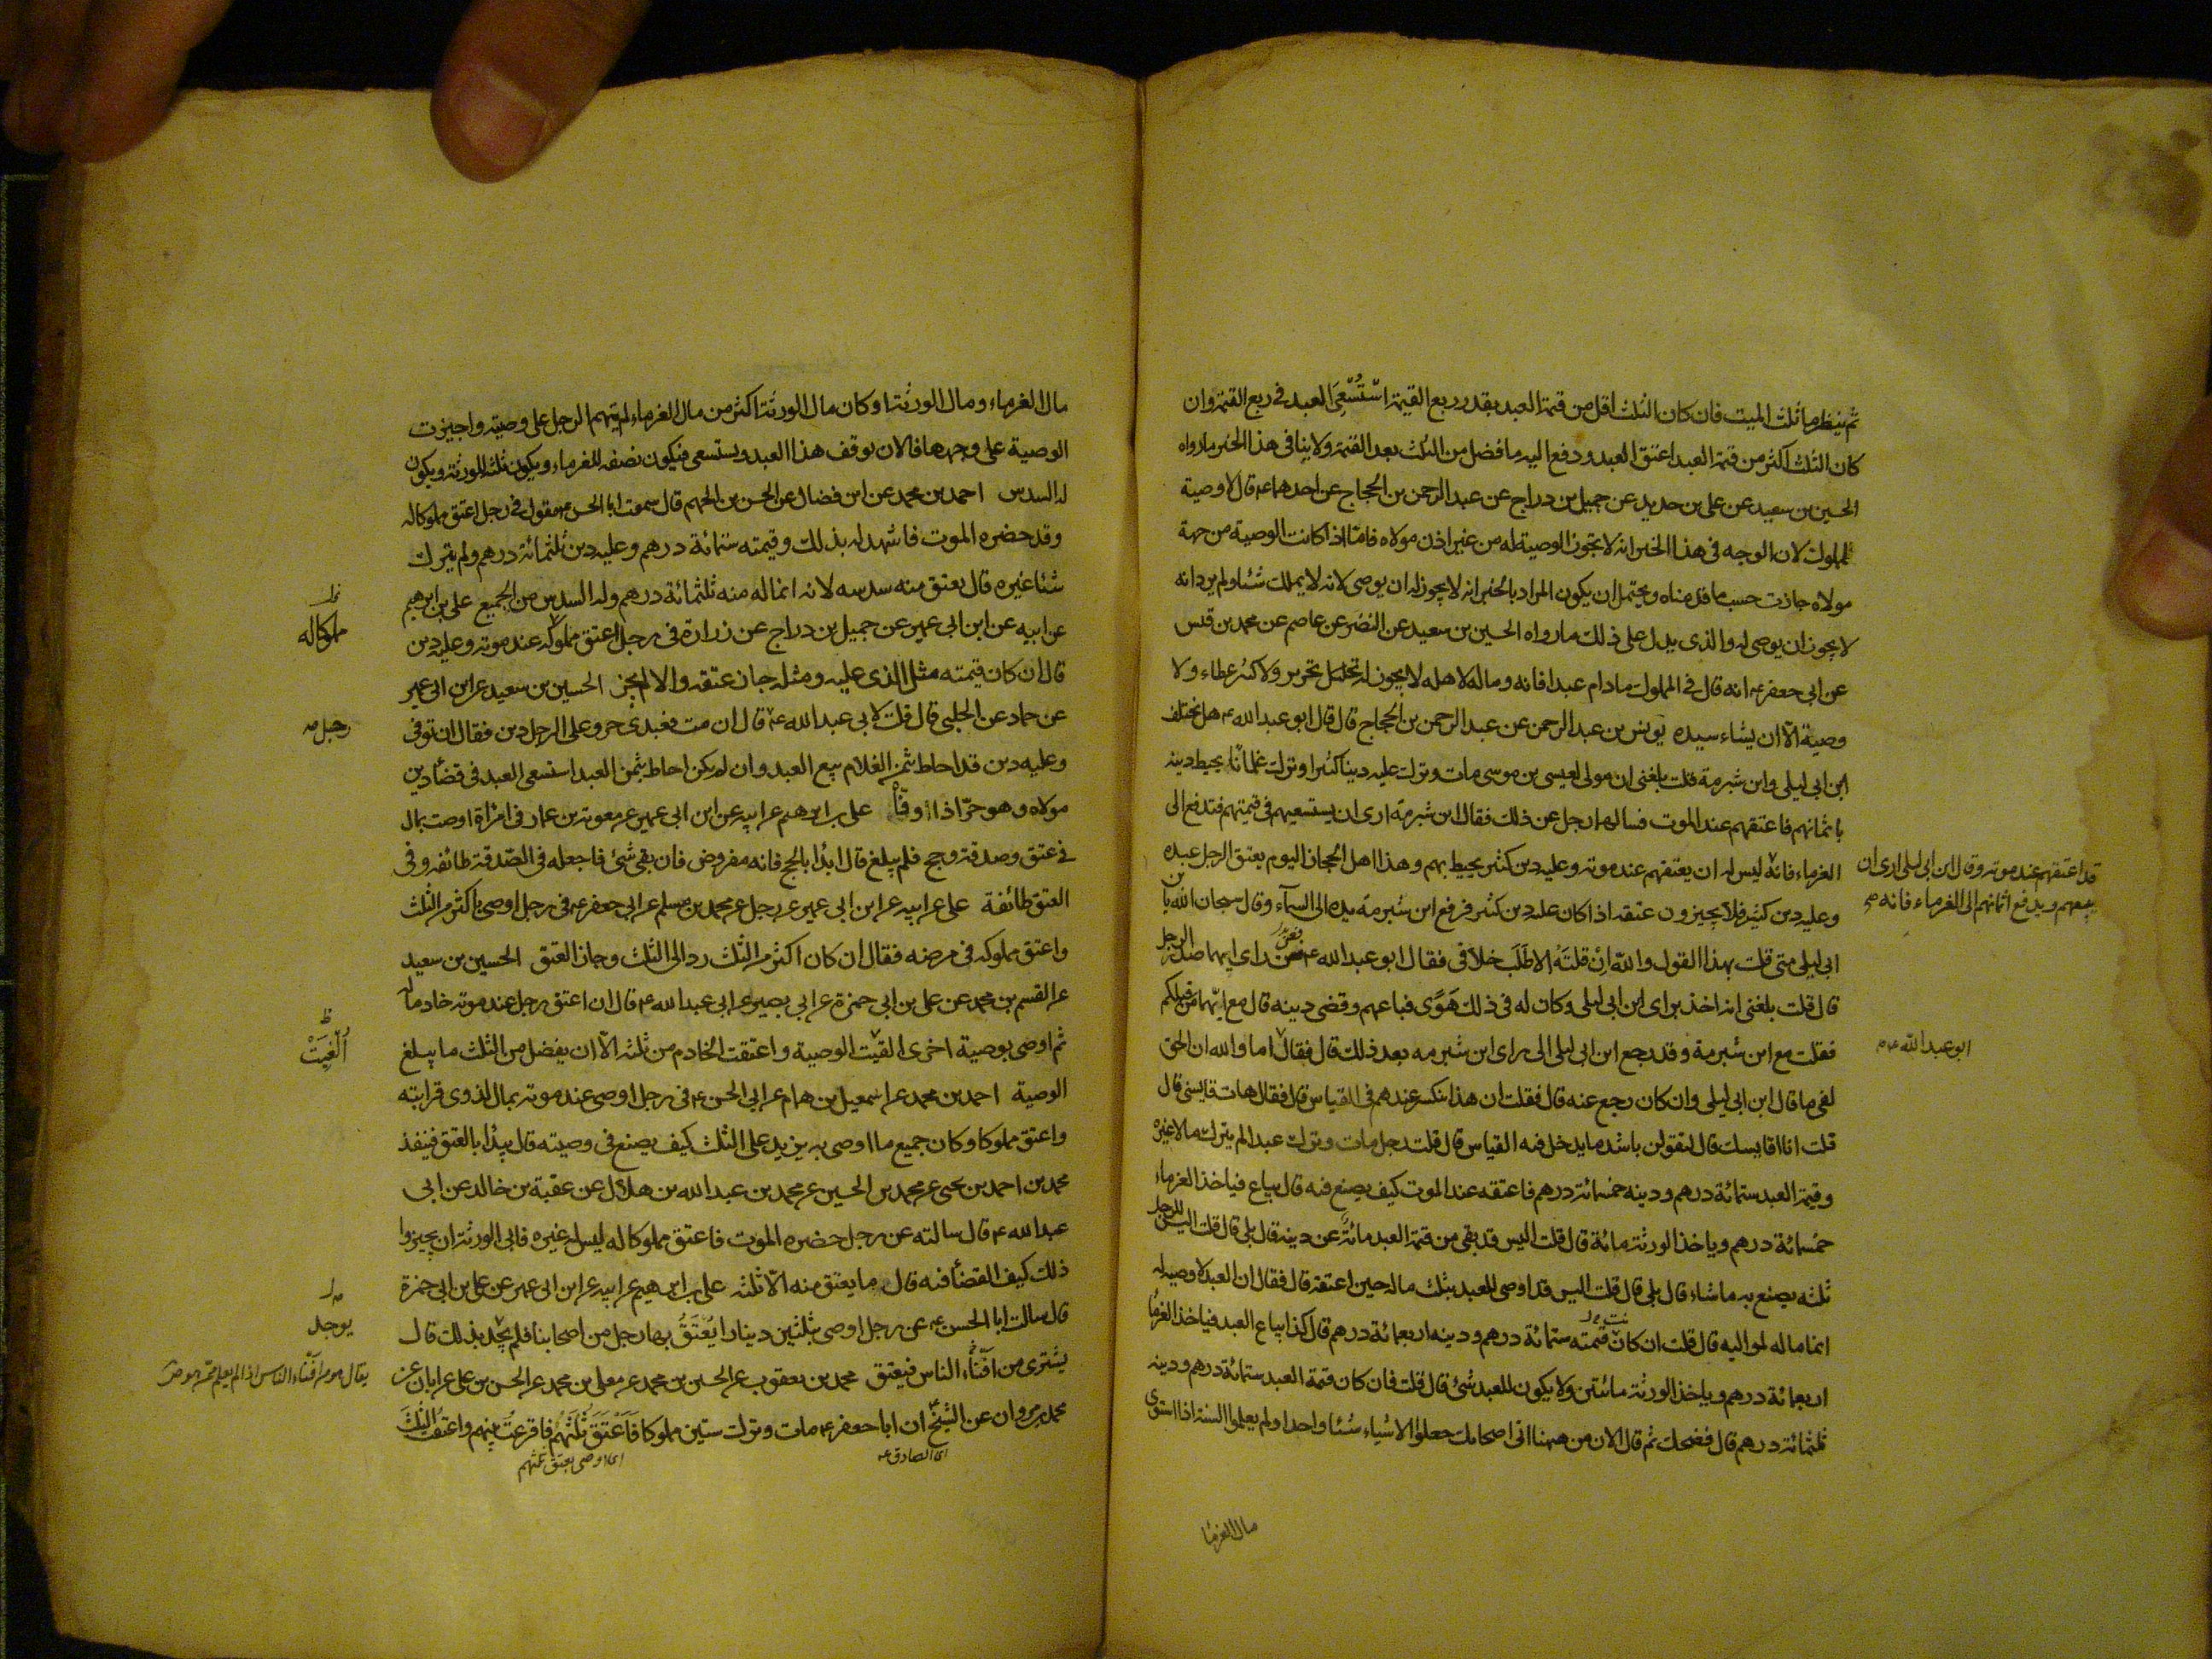 ثم ينظر ما ثلث الميت فان كان الثلث اقل من قيمة العبد بقدر ربع القيمة استسعى العبد في ربع القيمة وان
كان الثلث اكثر من قيمة العبد اعتق العبد ودفع اليه ما فضل من الثلث بعد القيمة ولا ينافي هذا الخبر ما رواه
الحسين بن سعيد عن علي بن حديد عن جميل بن دراج عن عبد الرحمن بن الحجاج عن احدهما ع قال لا وصية
لمملوك لان الوجه في هذا الخبر انه لا يجوز الوصية له من غير اذن مولاه فاما اذا كانت الوصية من جهة
مولاه جازت حسب ما قدمناه ويحتمل ان يكون المراد بالخبر انه لا يجوز له ان يوصي لانه لا يملك شيئا ولم يرد انه
لا يجوز ان يوصى له والذي يدل على ذلك ما رواه الحسين بن سعيد عن النضر عن عاصم عن محمد بن قيس
عن ابي جعفر ع انه قال في المملوك ما دام عبدا فانه وماله لاهله لا يجوز له تحرير ولا كثير عطاء ولا
وصية الا ان يشاء سيده يونس بن عبد الرحمن عن عبد الرحمن بن الحجاج قال قال ابو عبد الله ع هل يختلف
ابن ابي ليلى وابن شبرمة قلت بلغني ان مولى لعيسى بن موسى مات وترك عليه دينا كثيرا وترك غلمانا يحيط دينه
باثمانهم فاعتقهم عند الموت فسالهما رجل عن ذلك فقال ابن شبرمة ارى ان يستسعيهم في قيمتهم فتدفع الى
الغرماء فانه ليس له ان يعتقهم عند موته وعليه دين كثير يحيط بهم وهذا اهل الحجاز اليوم يعتق الرجل عبده
قد اعتقهم عند موته وقال ابن ابي ليلى ارى ان
يبيعهم ويدفع اثمانهم الى الغرماء فانه صح
وعليه دين كثير فلا يجيزون عتقه اذا كان عليه دين كثير فرفع ابن شبرمة يده الى السماء وقال سبحان الله يا بن
ابي ليلى متى قلت بهذا القول والله ان قلته الا طلب خلافي فقال ابو عبد الله ع فعن راي ايهما صدر الرجل
قال قلت بلغني انه اخذ براي ابن ابي ليلى وكان له في ذلك هوى فباعهم وقضى دينه قال مع ايهما من قبلكم
فقلت مع ابن شبرمة وقد رجع ابن ابي ليلى الى راي ابن شبرمه بعد ذلك قال فقال اما والله ان الحق
ابو عبد الله ع
لفي ما قال ابن ابي ليلى وان كان رجع عنه قال فقلت ان هذا ينكسر عندهم في القياس قال فقال هات قايسني قال
قلت انا اقايسك قال لتقولن باشد ما يدخل فيه القياس قال قلت رجل مات وترك عبدا لم يترك مالا غيره
وقيمة العبد ستمائة درهم ودينه خمسمائة درهم فاعتقه عند الموت كيف يصنع فيه قال يباع فياخذ الغرماء
خمسمائة درهم وياخذ الورثة مائة قال قلت اليس قد بقي من قيمة العبد مائة عن دينه قال بلى قال قلت اليس للرجل
ثلثه يصنع به ما شاء قال بلى قال قلت اليس قد اوصى للعبد بثلث ماله حين اعتقه قال فقال ان العبد لا وصيه له
انما ماله لمواليه قال قلت ان كان قيمته ستمائة درهم ودينه اربعمائة درهم قال كذا يباع العبد فياخذ الغرماء
اربعمائة درهم وياخذ الورثة مائتين ولا يكون للعبد شئ قال قلت فان كان قيمة العبد ستمائة درهم ودينه
ثلثمائة درهم قال فضحك ثم قال الان من ههنا اتى اصحابك جعلوا الاشياء شيئا واحدا ولم يعلموا السنة اذا استوى
مال الغرماء
مال الغرماء ومال الورثة او كان مال الورثة اكثر من مال الغرماء لم يتهم الرجل على وصيته واجيزت
الوصية على وجهها فالان يوقف هذا العبد ويستسعى فيكون نصفه للغرماء ويكون ثلثه للورثة ويكون
له السدس احمد بن محمد عن ابن فضال عن الحسن بن الجهم قال سمعت ابا الحسن ع يقول في رجل اعتق مملوكا له
وقد حضره الموت فاشهد له بذلك وقيمته ستمائة درهم وعليه دين ثلثمائة درهم ولم يترك
شيئا غيره قال يعتق منه سدسه لانه انما له منه ثلثمائة درهم وله السدس من الجميع علي بن ابرهيم
عن ابيه عن ابن ابي عمير عن جميل بن دراج عن زرارة في رجل اعتق مملوكه عند موته وعليه دين
مملوكا له
قال ان كان قيمته مثل الذي عليه ومثله جاز عتقه والا لم يجز الحسين بن سعيد عن ابن ابي عمير
عن حماد عن الحلبي قال قلت لابي عبد الله ع قال ان مت فعبدي حر وعلى الرجل دين فقال ان توفي
رجل
وعليه دين قد احاط بثمن الغلام بيع العبد وان لم يكن احاط بثمن العبد استسعى العبد في قضاء دين
مولاه وهو حر اذا اوفاه علي بن ابرهيم عن ابيه عن ابن ابي عمير عن معوية بن عمار في امراة اوصت بمال
في عتق وصدقة وحج فلم يبلغ قال ابدا بالحج فانه مفروض فان بقي شئ فاجعله في الصدقة طائفة وفي
العتق طائفة علي عن ابيه عن ابن ابي عمير عن رجل عن محمد بن مسلم عن ابي جعفر ع في رجل اوصى باكثر من الثلث
واعتق مملوكه في مرضه فقال ان كان اكثر من الثلث رد الى الثلث وجاز العتق الحسين بن سعيد
عن القسم بن محمد عن علي بن ابي حمزة عن ابي بصير عن ابي عبد الله ع قال ان اعتق رجل عند موته خادما له
ثم اوصى بوصية اخرى القيت الوصية واعتقت الخادم من ثلثه الا ان يفضل من الثلث ما يبلغ
الغيت
الوصية احمد بن محمد عن اسمعيل بن همام عن ابي الحسن ع في رجل اوصى عند موته بمال لذوي قرابته
واعتق مملوكا وكان جميع ما اوصى به يزيد على الثلث كيف يصنع في وصيته قال يبدا بالعتق فينفذ
محمد بن احمد بن يحيى عن محمد بن الحسين عن محمد بن عبد الله بن هلال عن عقبة بن خالد عن ابي
عبد الله ع قال سالته عن رجل حضره الموت فاعتق مملوكا له ليس له غيره فابى الورثة ان يجيزوا
ذلك كيف القضاء فيه قال ما يعتق منه الا ثلثه علي بن ابرهيم عن ابيه عن ابن ابي عمير عن علي بن ابي حمزة
قال سالت ابا الحسن ع عن رجل اوصى بثلثين دينارا يعتق بها رجل من اصحابنا فلم يجد بذلك قال
يوجد
يشترى من افناء الناس فيعتق محمد بن يعقوب عن الحسين بن محمد عن معلى بن محمد عن الحسن بن علي عن ابان عن
يقال هو من افناء الناس اذا لم يعلم ممن هو
محمد بن مروان عن الشيخ ان ابا جعفر ع مات وترك ستين مملوكا فاعتق ثلثهم فاقرعت بينهم واعتقت الثلث
اي الصادق ع
اي اوصى بعتق ثلثهم